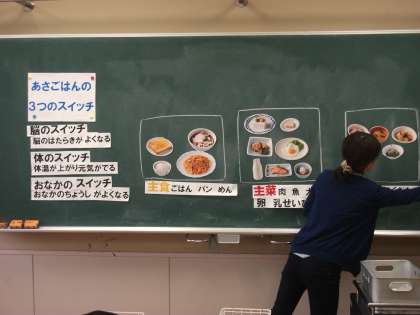 あさごはんの
3つのスイッチ
脳のスイッチ
脳のはたらきが よくなる
体のスイッチ
体温が上がり元気がでる
おなかの スイッチ
おなかのちょうし がよくなる
主食 ごはん パン めん
主菜 肉 魚
卵 乳せい